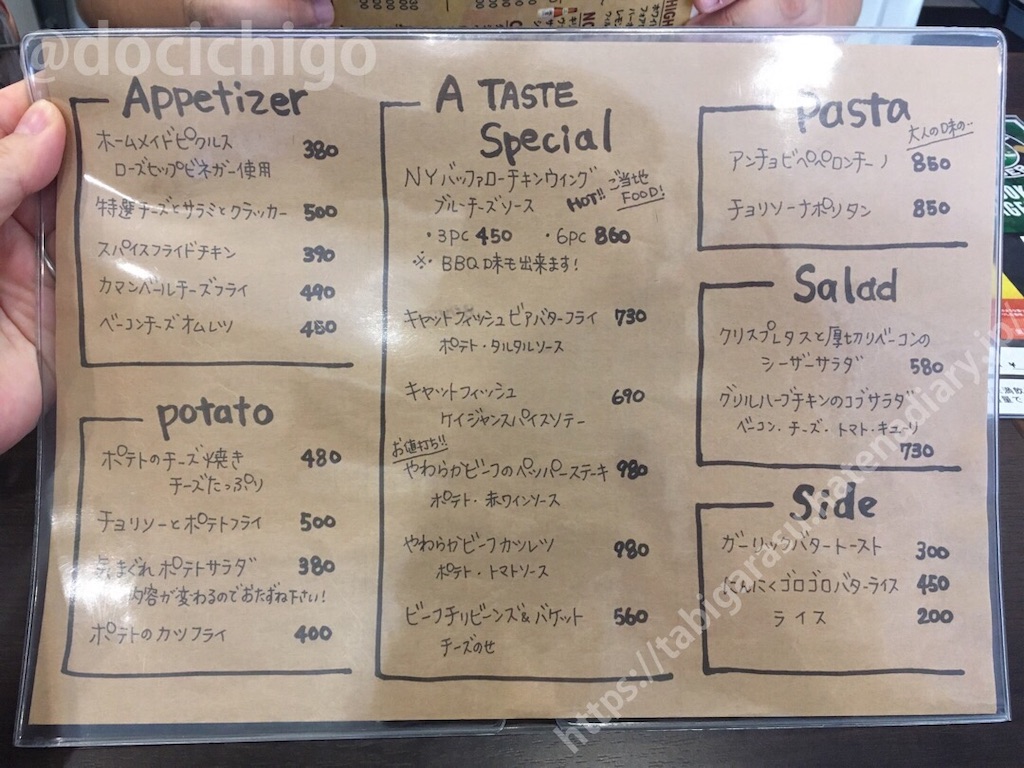 @docichigo
Appetizer
ホームメイドピクルス 380
ローズヒップビネガー使用
特選チーズとサラミとクラッカー 500
スパイスフライドチキン 390
カマンベールチーズフライ 490
ベーコンチーズオムレツ 450
potato
ポテトのチーズ焼き 480
チーズたっぷり
チョリソーとポテトフライ 500
気まぐれポテトサラダ 380
内容が変わるのでおたずね下さい!
ポテトのカツフライ 400
A TASTE
Special
NYバッファローチキンウイング ご当地
ブルーチーズソース HOT!! FOOD!
・3PC 450 ・6PC 860
※ BBQ味も出来ます!
キャットフィッシュビアバターフライ 730
ポテト・タルタルソース
キャットフィッシュ 690
ケイジャンスパイスソテー
お値打ち!!
やわらかビーフのペッパーステーキ 980
ポテト・赤ワインソース
やわらかビーフカツレツ 980
ポテト・トマトソース
ビーフチリビーンズ&バケット 560
チーズのせ
Pasta
大人の味の…
アンチョビペペロンチーノ 850
チョリソーナポリタン 850
Salad
クリスプレタスと厚切りベーコンの
シーザーサラダ 580
グリルハーブチキンのコブサラダ
ベーコン・チーズ・トマト・キューリ
730
Side
ガーリックバタートースト 300
にんにくゴロゴロバターライス 450
ライス 200
https://tabigarasu.hatendiary.j